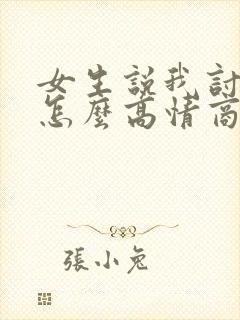 女生說我討
怎麼高情商
張小兔